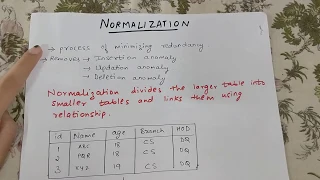 NORMALIZATION
→ process of minimizing redundancy
→ Removes → Insertion anomaly
→ Updation anomaly
→ Deletion anomaly
Normalization divides the larger table into
smaller tables and links them using
relationship.
id Name age Branch HOD
1 ABC 18 CS DQ
2 PQR 18 CS DQ
3 XYZ 19 CS DQ